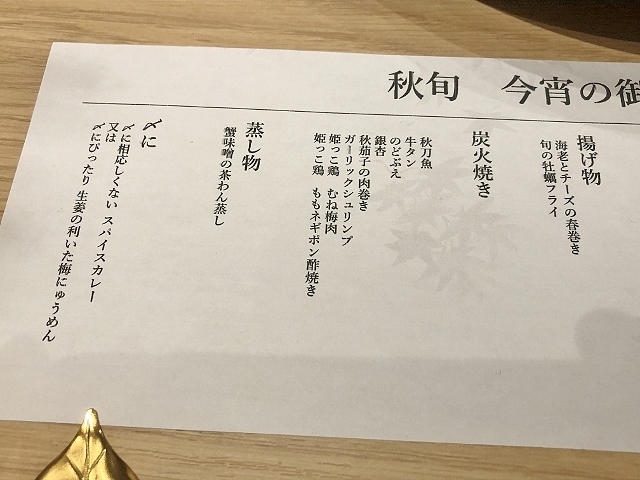 秋旬　今宵の御
揚げ物
海老とチーズの春巻き
旬の牡蠣フライ
炭火焼き
秋刀魚
牛タン
のどぶえ
銀杏
秋茄子の肉巻き
ガーリックシュリンプ
姫っこ鶏　むね梅肉
姫っこ鶏　ももネギポン酢焼き
蒸し物
蟹味噌の茶わん蒸し
〆に
〆に相応しくない スパイスカレー
又は
〆にぴったり 生姜の利いた梅にゅうめん